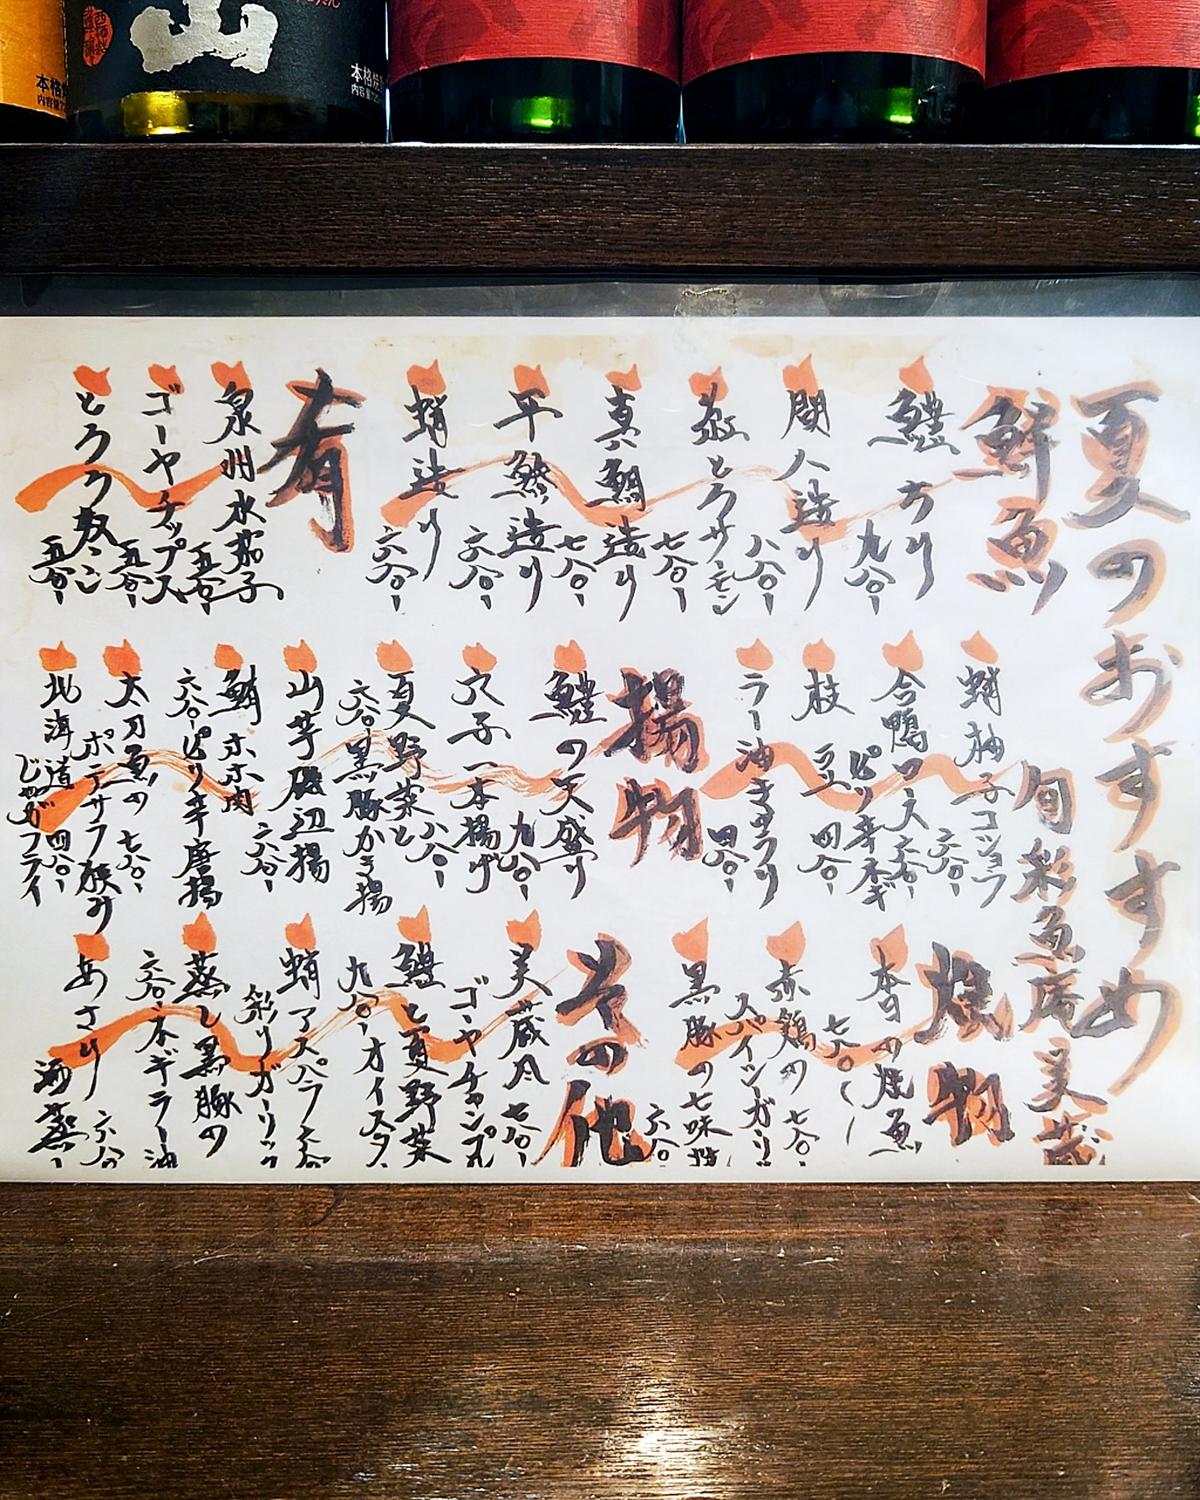 山
本格焼
内容量72
本格焼
内容量72
夏のおすすめ
旬彩魚庵 美蔵
鮮魚
鱧ちり 九八〇-
間八造り 八八〇-
紅とろサーモン 七八〇-
真鯛造り 七八〇-
平鯵造り 六八〇-
蛸造り 六八〇-
肴
泉州水茄子 五八〇-
ゴーヤチップス 五八〇-
とろろ 五八〇-
蛸柚子コショウ 六八〇-
合鴨ロース 六八〇-
ピリ辛ネギ
枝豆 四八〇-
ラー油キュウリ 四八〇-
揚物
鱧の天盛り 九八〇-
穴子一本揚げ 八八〇-
夏野菜と
黒豚かき揚 六八〇-
山芋磯辺揚 六八〇-
鮪ホホ肉
ピリ辛唐揚 六八〇-
太刀魚の 七八〇-
ポテサラ挟み
北海道 四八〇-
じゃがフライ
焼物
本日の焼魚 七八〇-
赤鶏の 七八〇-
スパイシーガーリ
黒豚の七味焼 六八〇-
その他
美蔵風 七八〇-
ゴーヤチャンプル
鱧と夏野菜
九八〇- オイスタ
蛸アスパラ 六八〇
彩りガーリック
蒸し黒豚の
六八〇- ネギラー油
あさり 六八〇
酒蒸し